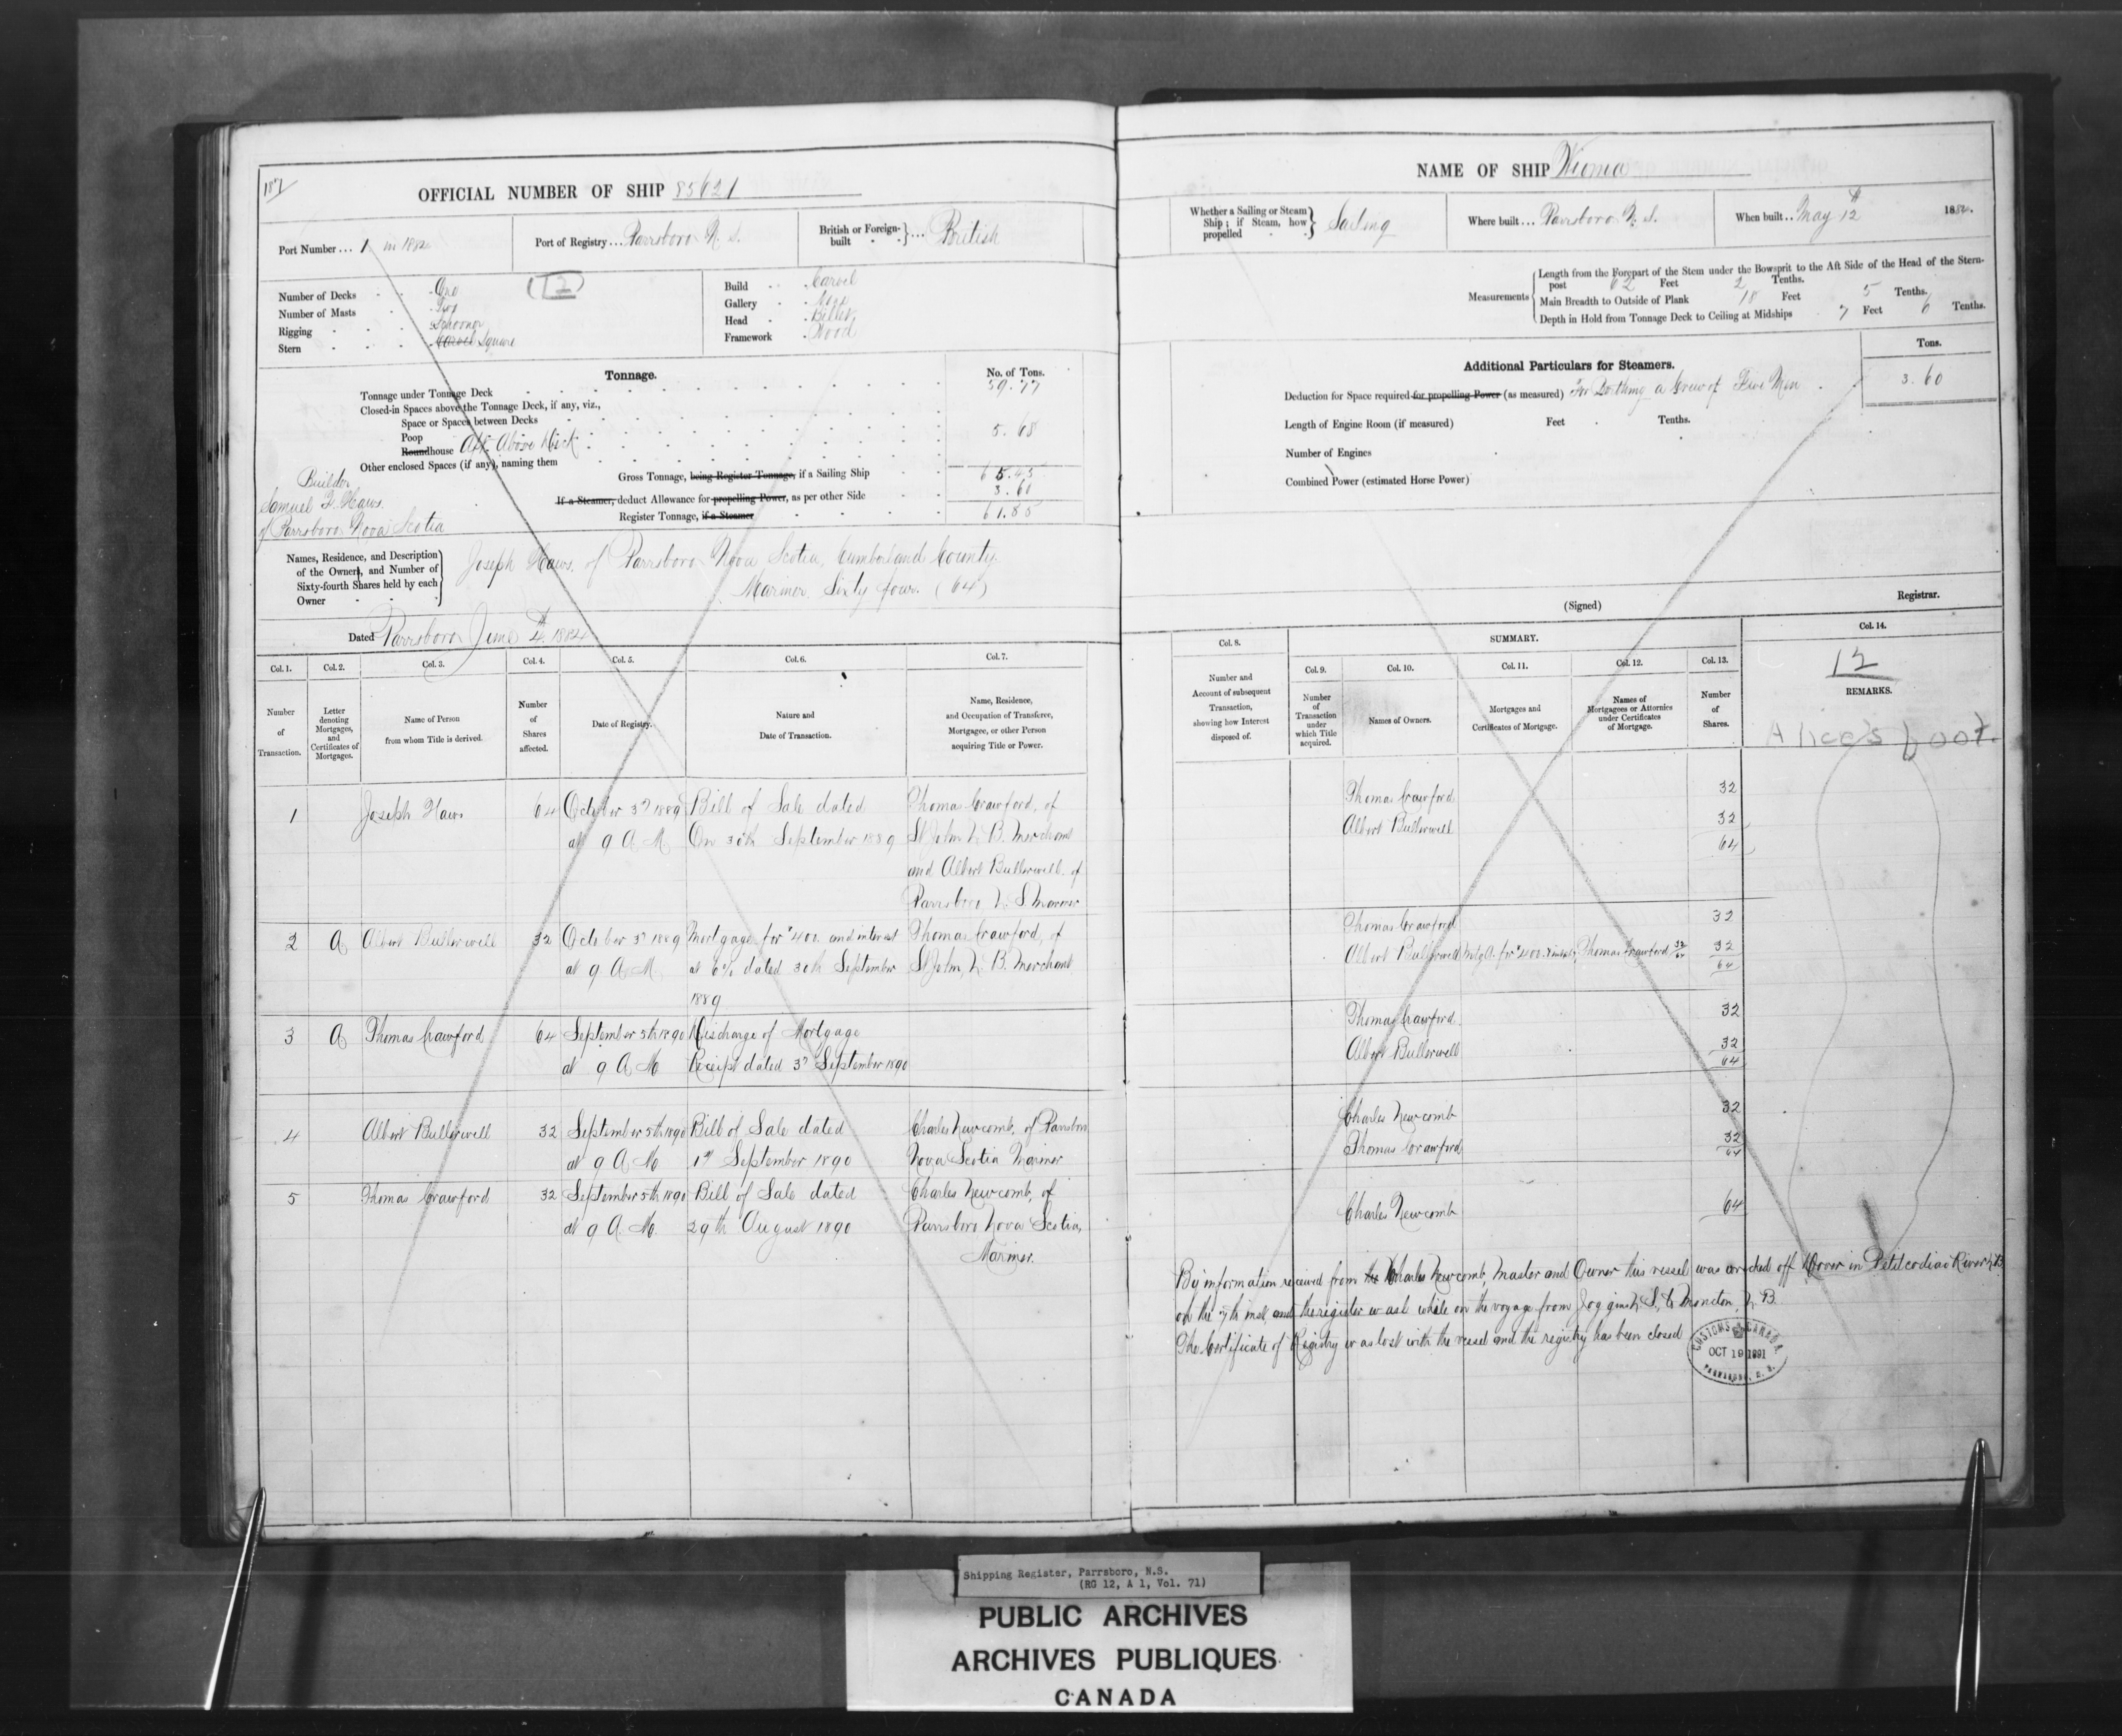 187
OFFICIAL NUMBER OF SHIP 85621
Port Number ... 1 in 1882
Port of Registry ... Parrsboro N. S.
British or Foreign-built } ... British
Number of Decks One
Number of Masts Two
Rigging Schooner
Stern Square
12
Build Carvel
Gallery None
Head Billet
Framework Wood
Tonnage.
No. of Tons.
Tonnage under Tonnage Deck 59.77
Closed-in Spaces above the Tonnage Deck, if any, viz.,
Space or Spaces between Decks
Poop
Roundhouse Aft Above Deck 5.68
Other enclosed Spaces (if any), naming them
Gross Tonnage, being Register Tonnage, if a Sailing Ship 65.45
If a Steamer, deduct Allowance for propelling Power, as per other Side 3.60
Register Tonnage, if a Steamer 61.85
Builder
Samuel F. Haws.
of Parrsboro Nova Scotia
Names, Residence, and Description
of the Owners, and Number of
Sixty-fourth Shares held by each
Owner
Joseph Haws. of Parrsboro Nova Scotia, Cumberland County.
Mariner Sixty four. (64)
Dated Parrsboro June 4th 1882
Col. 1. Col. 2. Col. 3. Col. 4. Col. 5. Col. 6. Col. 7.
Number of Transaction.
Letter denoting Mortgages, and Certificates of Mortgages.
Name of Person from whom Title is derived.
Number of Shares affected.
Date of Registry.
Nature and Date of Transaction.
Name, Residence, and Occupation of Transferee, Mortgagee, or other Person acquiring Title or Power.
1 Joseph Haws 64 October 3d 1889 Bill of Sale dated Thomas Crawford, of
at 9 A M. On 30th September 1889 St John N. B. Merchant
and Albert Butlerwell of
Parrsboro N. S Mariner
2 A Albert Butlerwell 32 October 3d 1889 Mortgage for $400. and interest Thomas Crawford, of
at 9 A M. at 6% dated 30th September St John, N. B. Merchant
1889
3 A Thomas Crawford 64 September 5th 1890 Discharge of Mortgage
at 9 A M Receipt dated 3d September 1890
4 Albert Butlerwell 32 September 5th 1890 Bill of Sale dated Charles Newcomb, of Parrsboro
at 9 A M 1st September 1890 Nova Scotia Mariner
5 Thomas Crawford 32 September 5th 1890 Bill of Sale dated Charles Newcomb, of
at 9 A. M. 29th August 1890 Parrsboro Nova Scotia,
Mariner.
NAME OF SHIP
Whether a Sailing or Steam Ship; if Steam, how propelled } Sailing
Where built ... Parrsboro N. S.
When built .. May 12th 1882.
Measurements
Length from the Forepart of the Stem under the Bowsprit to the Aft Side of the Head of the Stern-
post 62 Feet 2 Tenths.
Main Breadth to Outside of Plank 18 Feet 5 Tenths.
Depth in Hold from Tonnage Deck to Ceiling at Midships 7 Feet 6 Tenths.
Additional Particulars for Steamers.
Tons.
Deduction for Space required for propelling Power (as measured) For Berthing a Crew of Five Men 3.60
Length of Engine Room (if measured) Feet Tenths.
Number of Engines
Combined Power (estimated Horse Power)
(Signed) Registrar.
Col. 8. SUMMARY. Col. 14.
Col. 9. Col. 10. Col. 11. Col. 12. Col. 13.
12
Number and Account of subsequent Transaction, showing how Interest disposed of.
Number of Transaction under which Title acquired.
Names of Owners.
Mortgages and Certificates of Mortgage.
Names of Mortgagees or Attornies under Certificates of Mortgage.
Number of Shares.
REMARKS.
Alice's foot.
Thomas Crawford 32
Albert Butlerwell 32
64
Thomas Crawford 32
Albert Butlerwell Mtg A. for $400. & int 6% Thomas Crawford 32/64 32
64
Thomas Crawford 32
Albert Butlerwell 32
64
Charles Newcomb 32
Thomas Crawford 32
64
Charles Newcomb 64
By information received from Charles Newcomb, Master and Owner this vessel was wrecked off Dover in Petitcodiac River N. B.
on the 7th inst, and the register was lost while on the voyage from Joggins N. S., to Moncton, N. B.
The Certificate of Registry was lost with the vessel and the registry has been closed
CUSTOMS CANADA
OCT 19 1891
PARRSBORO, N. S.
Shipping Register, Parrsboro, N.S.
(RG 12, A 1, Vol. 71)
PUBLIC ARCHIVES
ARCHIVES PUBLIQUES
CANADA